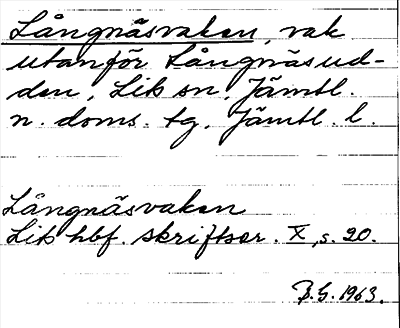 Långnäsvaken, vak
utanför Långnäsud-
den, Lits sn, Jämtl.
n. doms. tg, Jämtl. l.
Långnäsvaken
Lits hbf. skriftser. X, s. 20.
B.G. 1963.